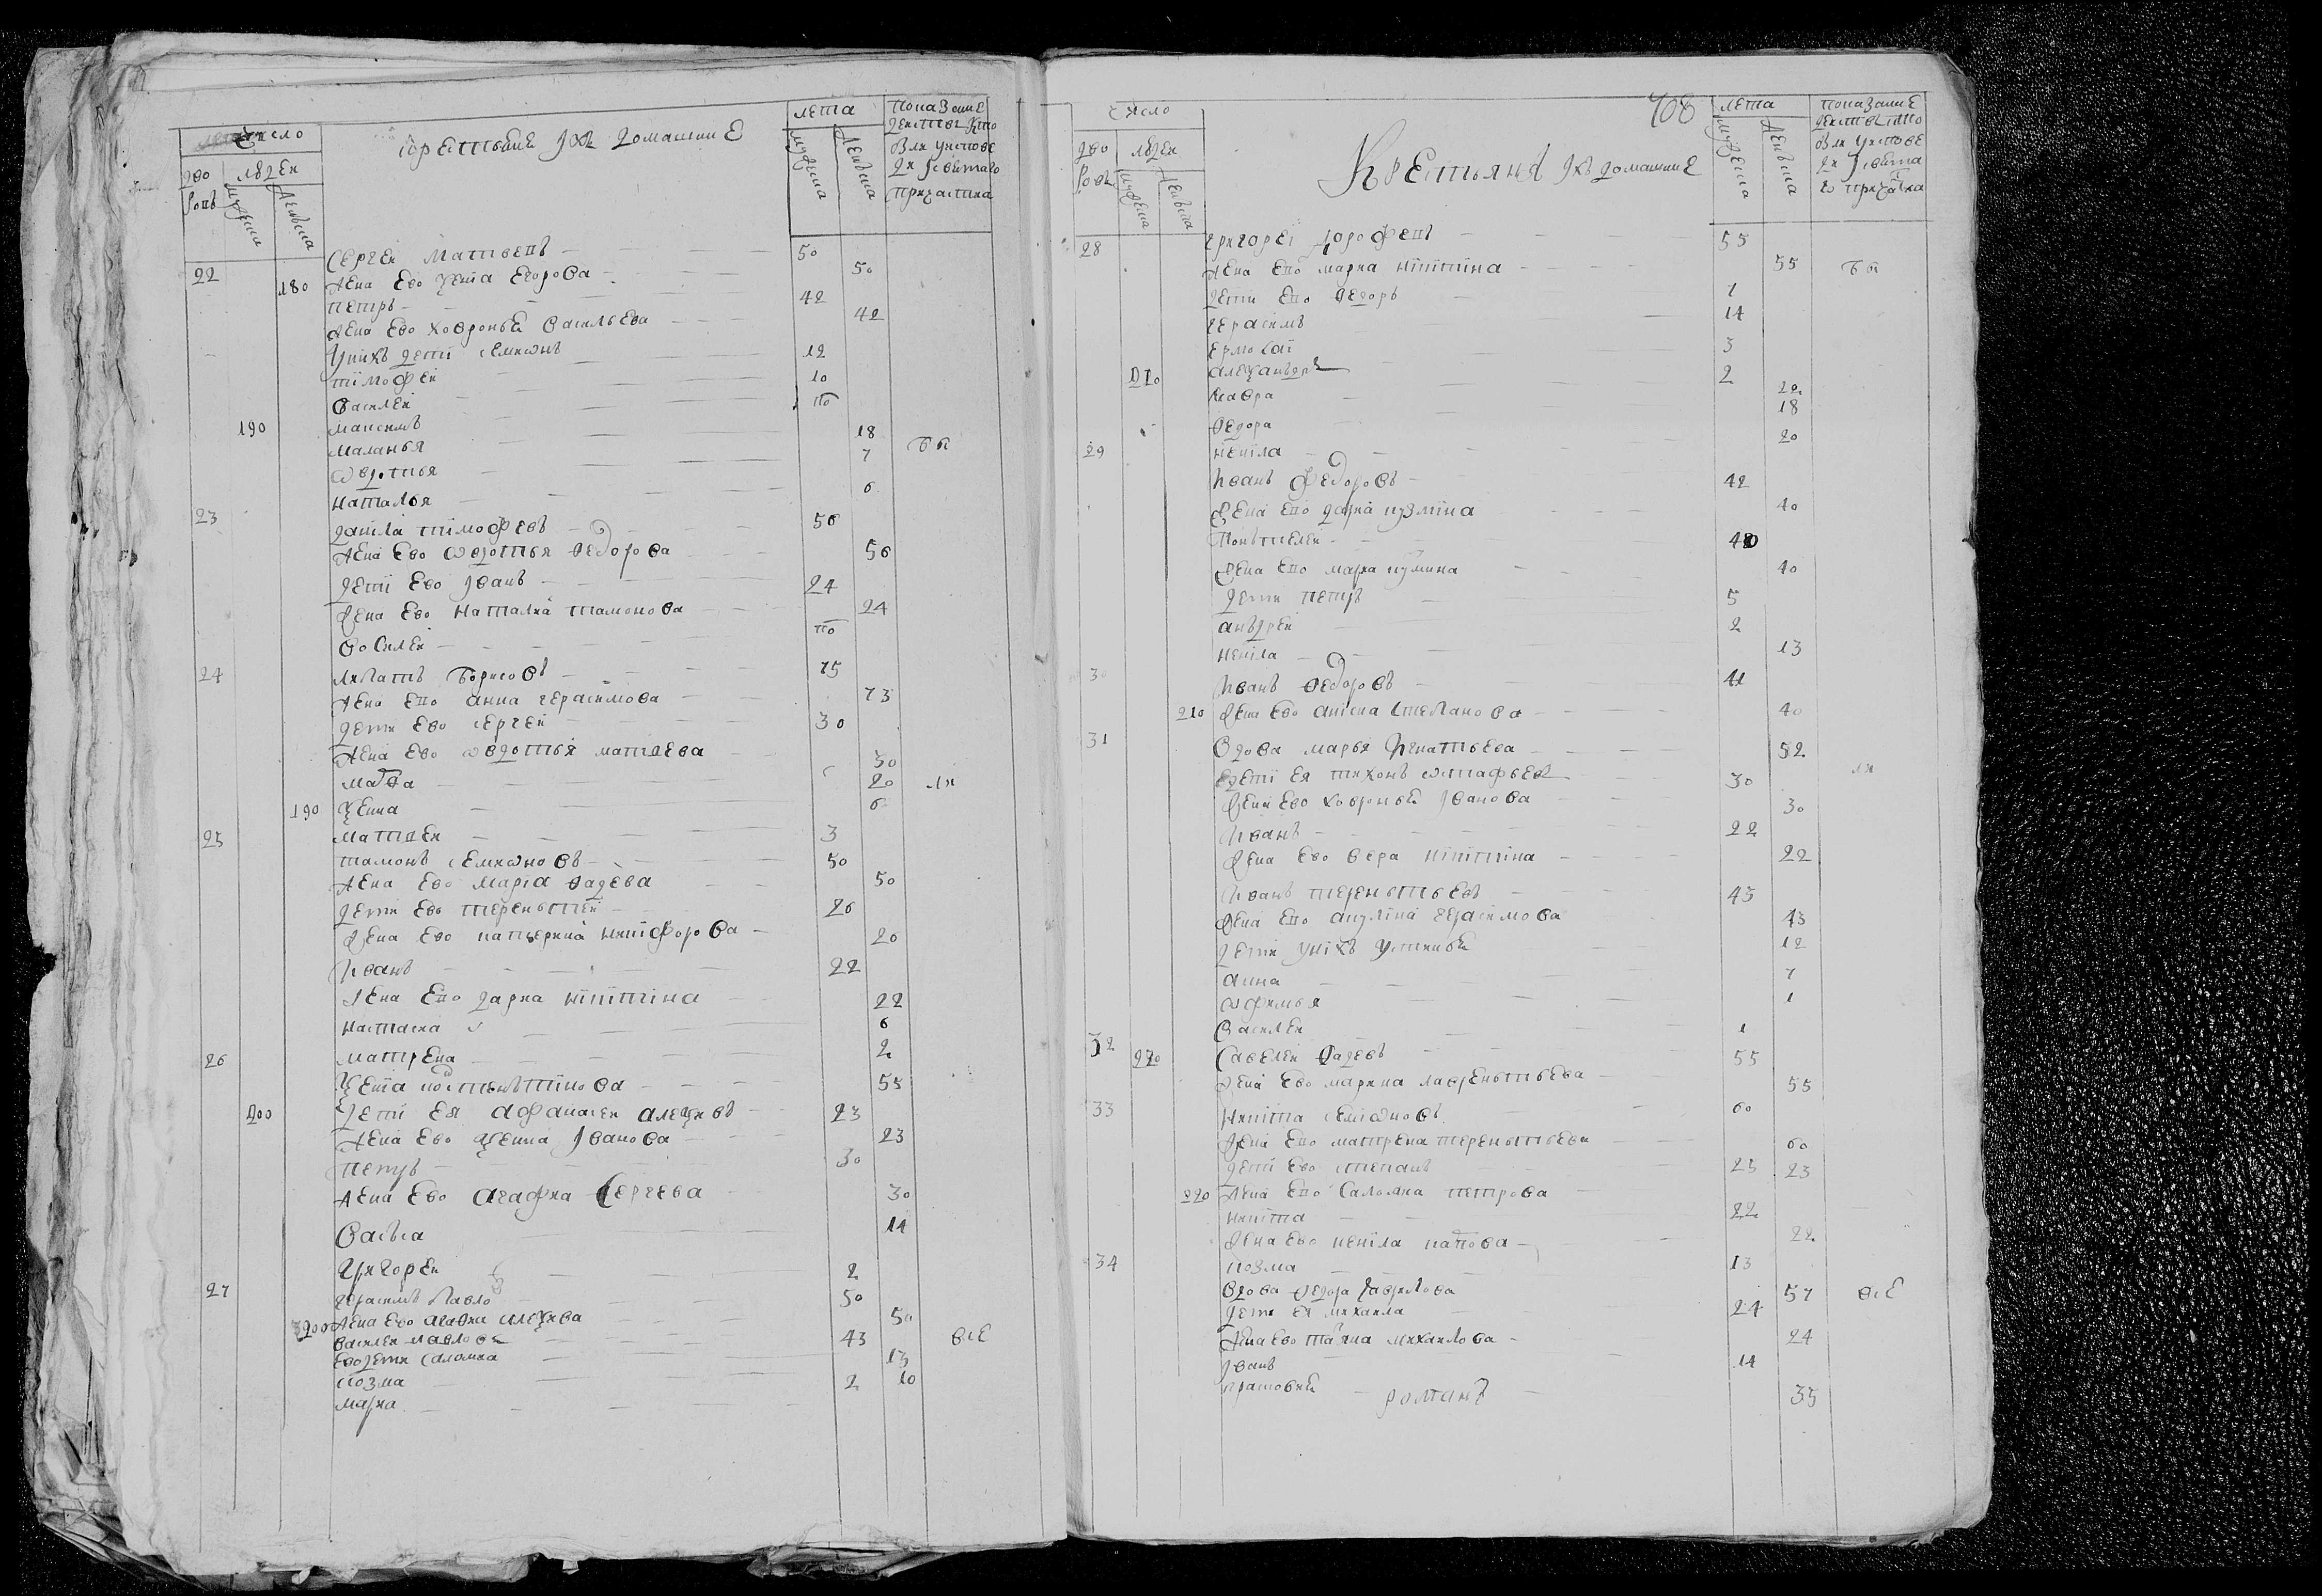 число
дво
ровъ
людеи
мужеска
женьска
крестьяне ихъ домашние
лета
мужеска
женьска
показание
Сергеи Матвеевъ 50
22 180 жена ево Ксения Егорова 50
петръ 42
жена ево ховронья васильева 42
у нихъ дети семионъ 12
тимофеи 10
василеи
190 максимъ
маланья 18
овдотья 7 бы
наталья 6
23 данила тимофеевъ 56
жена ево овдотья федорова 56
дети ево иванъ 24
жена ево наталия тамонова 24
василеи
24 липатъ борисовъ 75
жена ево анна герасимова 73
дети ево сергеи 30
жена ево овдотья матвеева 30
20 ли
190 Ксения 6
25 матвеи 3
тамонъ семионовъ 50
жена ево мариа фадеева 50
дети ево терентеи 26
жена ево катерина никифорова 26
иванъ 22
жена ево дариа никитина 22
настасиа 6
26 матрена 2
Ксения костентинова 55
200 дети ея афанасеи алексеевъ 23
жена ево Ксения иванова 23
петръ 30
жена ево агафиа Сергеева 30
васьса 11
григореи 2
27 герасимъ павло 50
200 жена ево 50
василеи павловъ 43 все
ево дети саломиа 13
козма 2 10
мариа
408
число
дво
ровъ
людеи
мужеска
женьска
Крестьяня ихъ домашние
лета
мужеска
женьска
показание
28 григореи дорофеевъ 55
жена ево мариа никитина 55 бы
дети ево федоръ 7
герасимъ 14
ермолаи 3
210 александръ 2
мавра 22
федора 18
29 ненила 20
иванъ федоровъ 42
жена ево дариа кузмина 40
понтелеи 40
жена ево мариа кузмина 40
дети петръ 5
андреи 2
ненила 13
30 иванъ федоровъ 41
210 жена ево анисиа степанова 40
31 вдова марья игнатьева 52
дети ея тихонъ остафьевъ 30 ли
жена ево ховронья иванова 30
иванъ 22
жена ево вера никитина 22
иванъ терентьевъ 43
жена ево акулина герасимова 43
дети у нихъ устинья 12
анна 7
офимья 1
василеи 1
32 220 савелеи фадеевъ 55
жена ево марина лаврентьева 55
33 никита семионовъ 60
жена ево матрена терентьева 60
дети ево степанъ 23 23
220 жена ево саломиа петрова
никита 22
жена ево ненила 22
34 козма 13
вдова федора гаврилова 57 все
дети ея михаила 24
жена ево татиана михаилова 24
иванъ 14
прасковья романъ 35